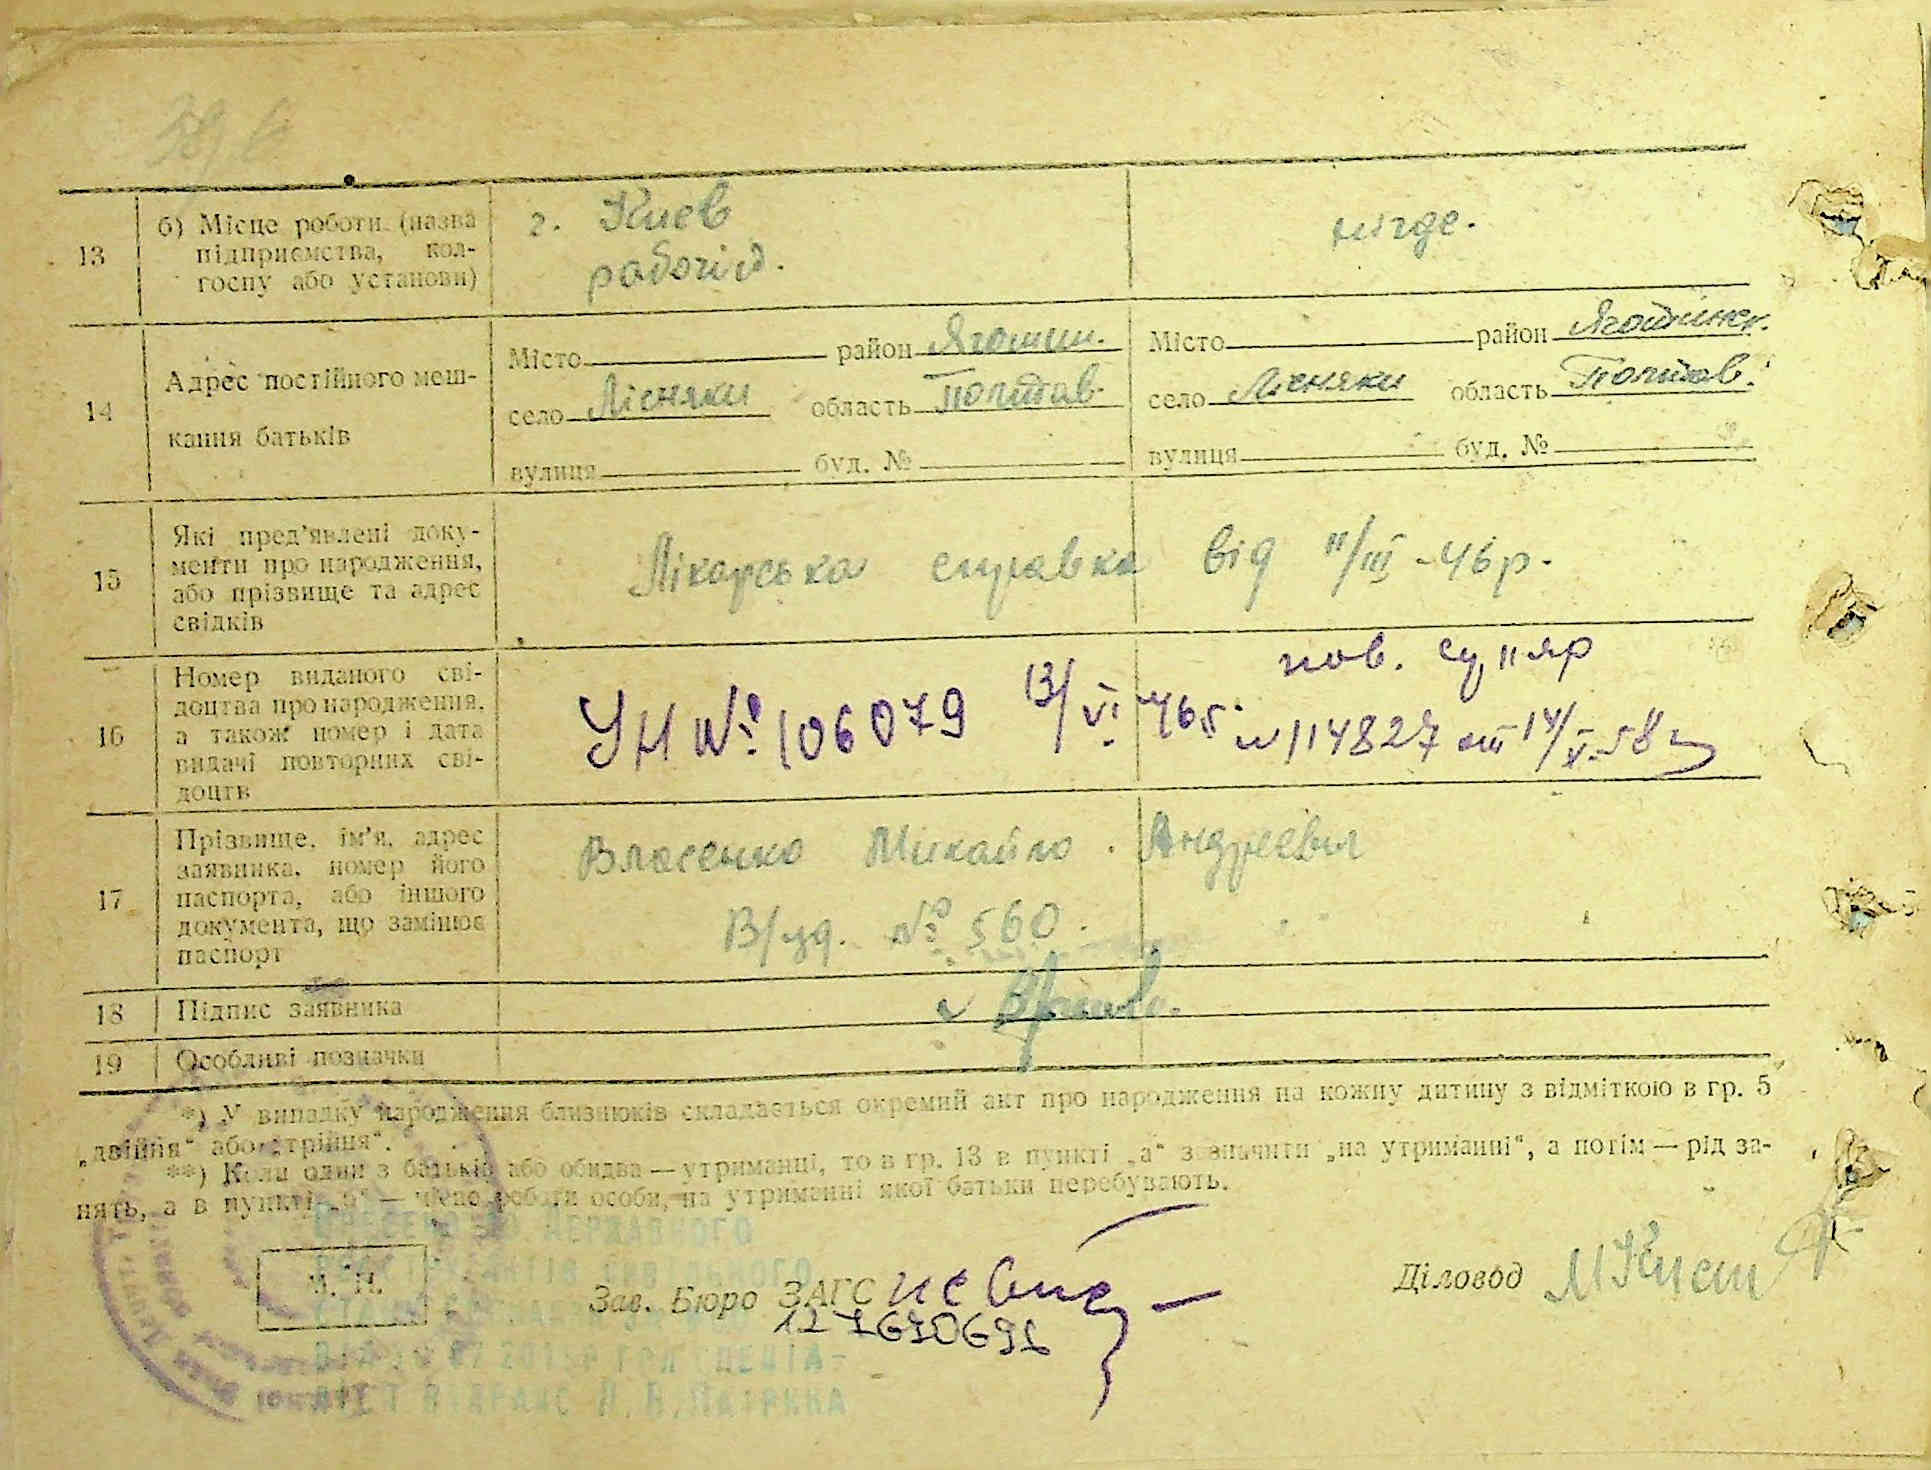 13
б) Місце роботи (назва
підприємства, кол-
госпу або установи)
г. Киев
рабочій.
нігде.
14
Адрес постійного меш-
кання батьків
Місто район Яготин.
село Лісняки область Полтав.
вулиця буд. №
Місто район Яготинск.
село Лісняки область Полтав.
вулиця буд. №
15
Які пред'явлені доку-
менти про народження,
або прізвище та адрес
свідків
Лікарська справка від 11/III -46р.
16
Номер виданого сві-
доцтва про народження,
а також номер і дата
видачі повторних сві-
доцтв
УН № 106079 13/VI
пов.
114827 от 14/V-58
17
Прізвище, ім'я, адрес
заявника, номер його
паспорта, або іншого
документа, що замінює
паспорт
Власенко Михайло Андреевич
В/уд. № 560.
18
Підпис заявника
19
Особливі позначки
*) У випадку народження близнюків складається окремий акт про народження на кожну дитину з відміткою в гр. 5
„двійня" або „трійня".
**) Коли один з батьків або обидва — утриманці, то в гр. 13 в пункті „а" зазначити „на утриманні", а потім — рід за-
нять, а в пункті „б" — місце роботи особи, на утриманні якої батьки перебувають.
М. П.
Зав. Бюро ЗАГС
Діловод
ДЕРЖАВНОГО